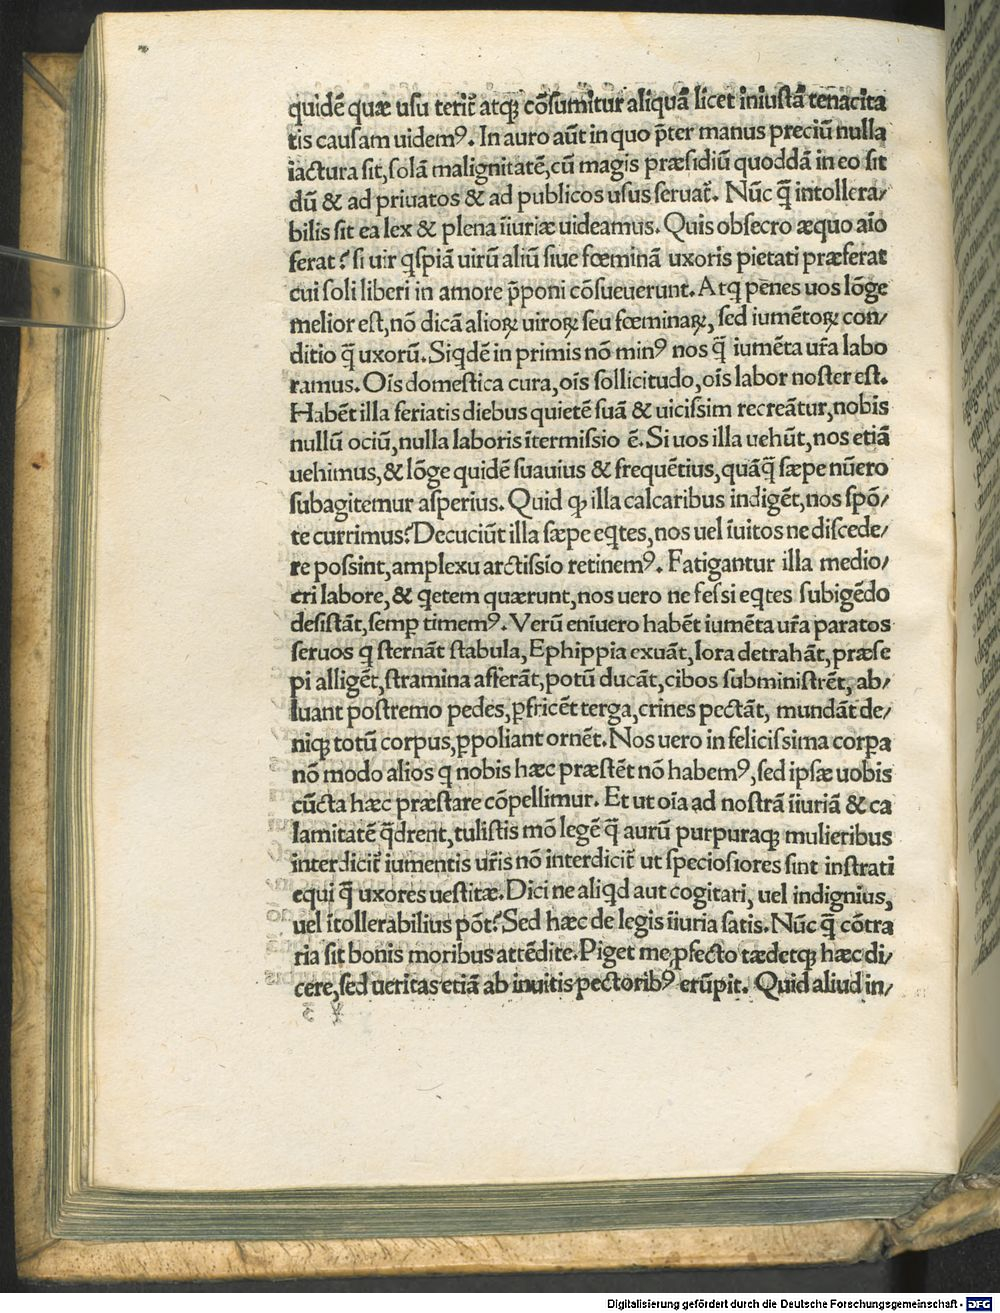 quidē quæ usu terit᷑ atqꝫ cōsumitur aliquā licet iniustā tenacita
tis causam uidemꝰ. In auro aūt in quo p̄ter manus preciū nulla
iactura sit, solā malignitatē, cū magis præsidiū quoddā in eo sit
dū & ad priuatos & ad publicos usus seruat᷑. Nūc q̄ intollera/
bilis sit ea lex & plena īiuriæ uideamus. Quis obsecro æquo aīo
ferat? si uir qspiā uirū aliū siue fœminā uxoris pietati præferat
cui soli liberi in amore p̄poni cōsueuerunt. Atq penes uos lōge
melior est, nō dicā alioꝝ uiroꝝ seu fœminaꝝ, sed iumētoꝝ con/
ditio q̄ uxorū. Siqdē in primis nō minꝰ nos q̄ iumēta ur̄a labo
ramus. Oīs domestica cura, oīs sollicitudo, oīs labor noster est.
Habēt illa feriatis diebus quietē suā & uicissim recreātur, nobis
nullū ociū, nulla laboris ītermissio ē. Si uos illa uehūt, nos etiā
uehimus, & lōge quidē suauius & frequētius, quāq̄ sæpe nūero
subagitemur asperius. Quid ꝙ illa calcaribus indigēt, nos spō/
te currimus? Decuciūt illa sæpe eqtes, nos uel īuitos ne discede/
re possint, amplexu arctissīo retinemꝰ. Fatigantur illa medio/
cri labore, & qetem quærunt, nos uero ne fessi eqtes subigēdo
desistāt, semꝑ timemꝰ. Verū enīuero habēt iumēta ur̄a paratos
seruos q sternāt stabula, Ephippia exuāt, lora detrahāt, præse
pi alligēt, stramina afferāt, potū ducāt, cibos subministrēt, ab/
luant postremo pedes, ꝑfricēt terga, crines pectāt, mundāt de/
niqꝫ totū corpus, ꝑpoliant ornēt. Nos uero in felicissima corꝑa
nō modo alios q nobis hæc præstēt nō habemꝰ, sed ipsæ uobis
cūcta hæc præstare cōpellimur. Et ut oīa ad nostrā īiuriā & ca
lamitatē q̄drent, tulistis mō legē q̄ aurū purpuraqꝫ mulieribus
interdicit᷑ iumentis ur̄is nō interdicit᷑ ut speciosiores sint instrati
equi q̄ uxores uestitæ. Dici ne aliqd aut cogitari, uel indignius,
uel ītollerabilius pōt? Sed hæc de legis īiuria satis. Nūc q̄ cōtra
ria sit bonis moribus attēdite. Piget me ꝓfecto tædetqꝫ hæc di/
cere, sed ueritas etiā ab inuitis pectoribꝰ erūpit. Quid aliud in/
Digitalisierung gefördert durch die Deutsche Forschungsgemeinschaft - DFG